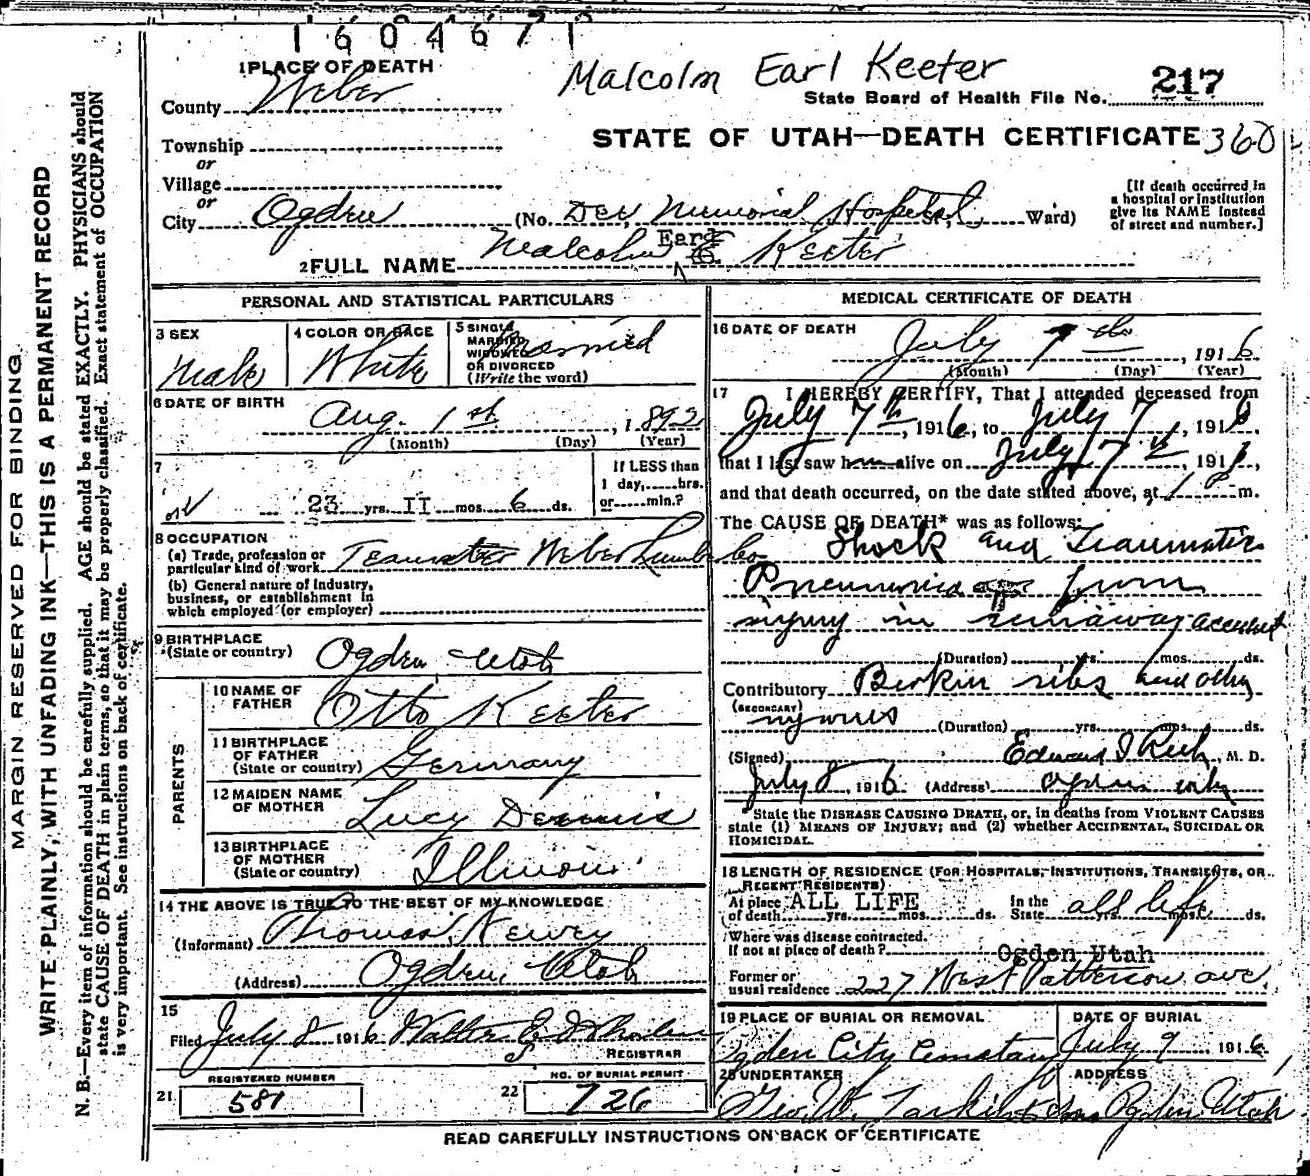 1604671
1 PLACE OF DEATH
Malcolm Earl Keeter
County Weber
State Board of Health File No. 217
Township
STATE OF UTAH—DEATH CERTIFICATE 360
or
Village
or
City Ogden (No. Dee Memorial Hospital St., Ward)
[If death occurred in
a hospital or institution
give its NAME instead
of street and number.]
Earl
2 FULL NAME Malcolm E. Keeter
PERSONAL AND STATISTICAL PARTICULARS
3 SEX
Male
4 COLOR OR RACE
White
5 SINGLE
MARRIED
WIDOWED
OR DIVORCED
(Write the word)
Married
6 DATE OF BIRTH
Aug. 1st, 1892
(Month) (Day) (Year)
7
23 yrs. II mos. 6 ds.
If LESS than
1 day, hrs.
or min.?
8 OCCUPATION
(a) Trade, profession or
particular kind of work Teamster Weber Lumber Co
(b) General nature of industry,
business, or establishment in
which employed (or employer)
9 BIRTHPLACE
(State or country) Ogden Utah
PARENTS
10 NAME OF
FATHER Otto Keeter
11 BIRTHPLACE
OF FATHER
(State or country) Germany
12 MAIDEN NAME
OF MOTHER Lucy
13 BIRTHPLACE
OF MOTHER
(State or country) Illinois
14 THE ABOVE IS TRUE TO THE BEST OF MY KNOWLEDGE
(Informant) Thomas Newey
(Address) Ogden, Utah
15
Filed July 8 1916 Walter E.
REGISTRAR
REGISTERED NUMBER
21 581
NO. OF BURIAL PERMIT
22 726
MEDICAL CERTIFICATE OF DEATH
16 DATE OF DEATH
July 7th, 1916
(Month) (Day) (Year)
17 I HEREBY CERTIFY, That I attended deceased from
July 7th, 1916, to July 7, 1916
that I last saw him alive on July 7th, 191
and that death occurred, on the date stated above, at 1 P m.
The CAUSE OF DEATH* was as follows:
Shock and Traumatic
Pneumonia from
injury in runaway accident
(Duration) yrs. mos. ds.
Contributory Broken ribs and other
(SECONDARY)
injuries (Duration) yrs. mos. ds.
(Signed) Edward I Rich, M. D.
July 8, 1916 (Address) Ogden Utah
*State the DISEASE CAUSING DEATH, or, in deaths from VIOLENT CAUSES
state (1) MEANS OF INJURY; and (2) whether ACCIDENTAL, SUICIDAL OR
HOMICIDAL.
18 LENGTH OF RESIDENCE (FOR HOSPITALS, INSTITUTIONS, TRANSIENTS, OR
RECENT RESIDENTS)
At place ALL LIFE
of death yrs. mos. ds.
In the
State all life yrs. mos. ds.
Where was disease contracted.
If not at place of death?
Ogden Utah
Former or
usual residence 227 West Patterson ave.
19 PLACE OF BURIAL OR REMOVAL
Ogden City Cemetary
DATE OF BURIAL
July 9 1916
20 UNDERTAKER
Geo. W. Larkin & Sons
ADDRESS
Ogden Utah
READ CAREFULLY INSTRUCTIONS ON BACK OF CERTIFICATE
MARGIN RESERVED FOR BINDING
WRITE PLAINLY, WITH UNFADING INK—THIS IS A PERMANENT RECORD
N. B.—Every item of information should be carefully supplied. AGE should be stated EXACTLY. PHYSICIANS should
state CAUSE OF DEATH in plain terms, so that it may be properly classified. Exact statement of OCCUPATION
is very important. See instructions on back of certificate.